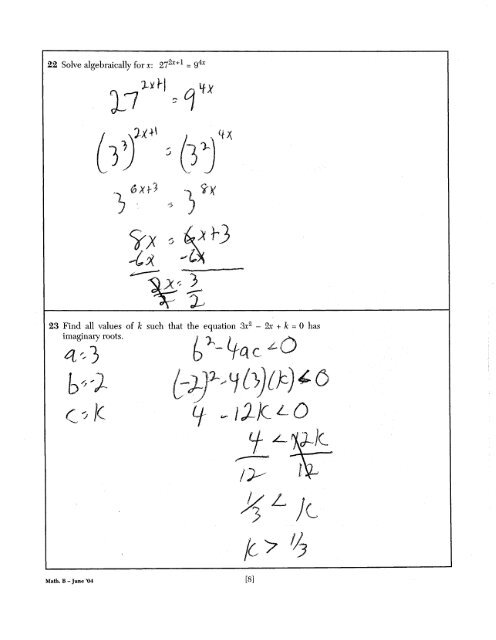 22 Solve algebraically for x: 27^{2x+1} = 9^{4x}
27^{2x+1} = 9^{4x}
(3^3)^{2x+1} = (3^2)^{4x}
3^{6x+3} = 3^{8x}
8x = 6x+3
-6x -6x
2x = 3
2 2
23 Find all values of k such that the equation 3x² – 2x + k = 0 has
imaginary roots.
a=3 b²-4ac<0
b=-2 (-2)²-4(3)(k)<0
c=k 4 -12k<0
4 < 12k
12 12
1/3 < k
k > 1/3
Math. B – June '04 [8]